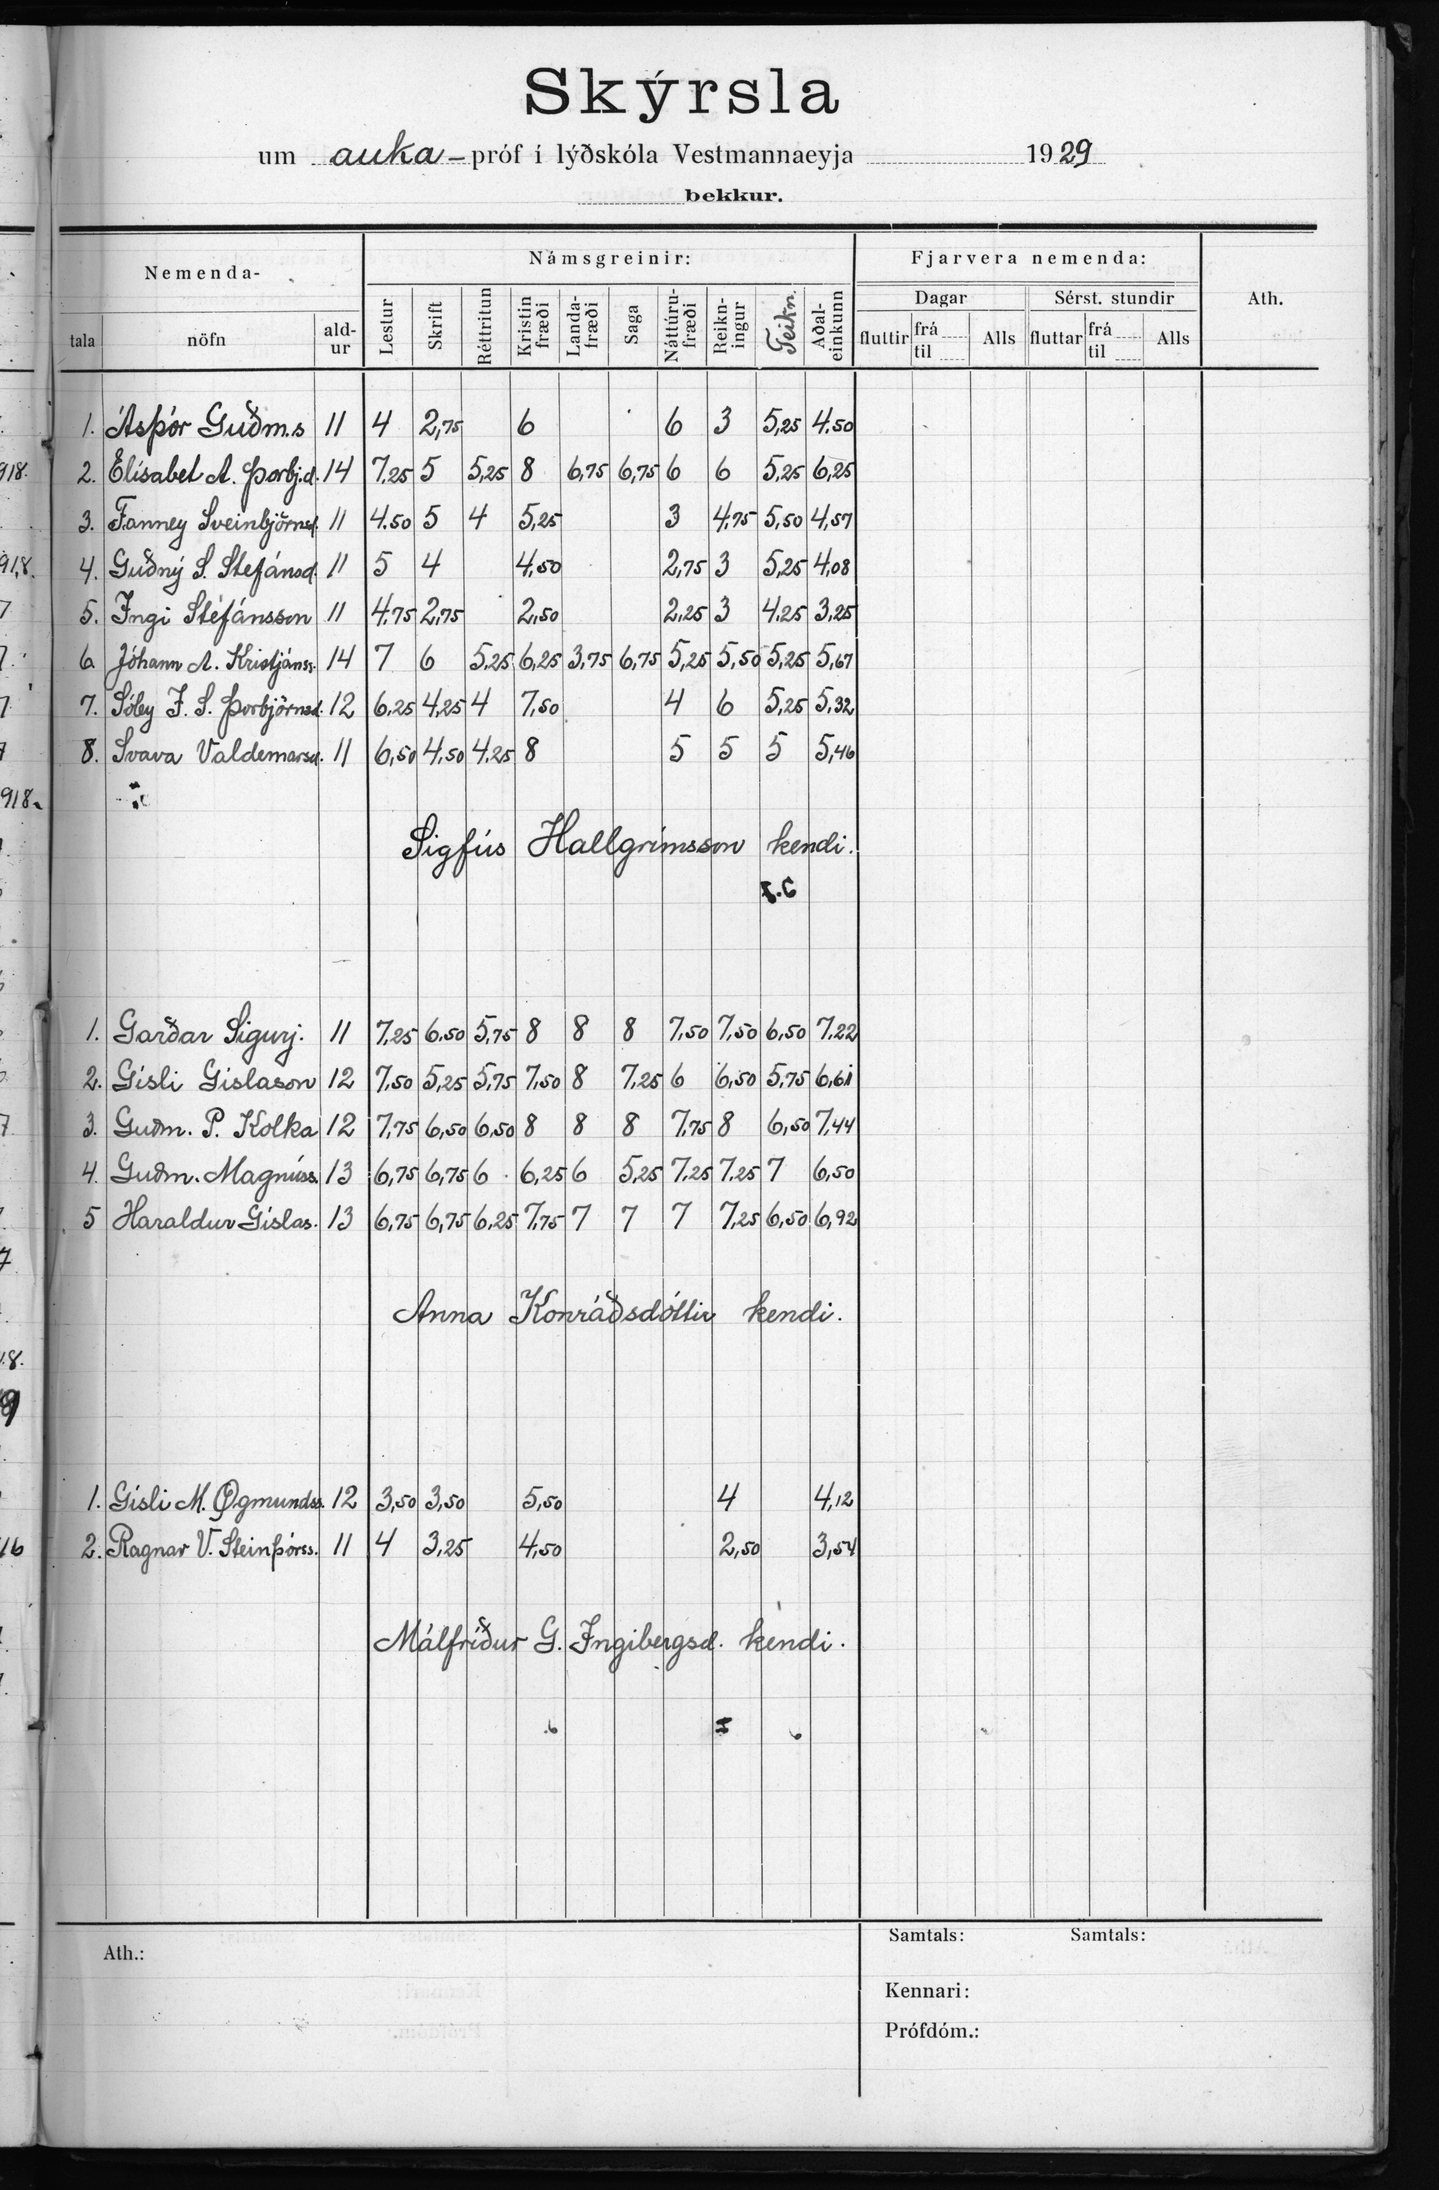 Skýrsla
um auka- próf í lýðskóla Vestmannaeyja 1929
bekkur.
Nemenda- Námsgreinir: Fjarvera nemenda: Ath.
Dagar Sérst. stundir
tala nöfn ald-ur Lestur Skrift Réttritun Kristin fræði Landa-fræði Saga Náttúru-fræði Reikn-ingur Teikn. Aðal-einkunn fluttir frá til Alls fluttar frá til Alls
1. Ásþór Guðm.s 11 4 2,75 6 6 3 5,25 4,50
2. Elísabet A. Þorbj.d. 14 7,25 5 5,25 8 6,75 6,75 6 6 5,25 6,25
3. Fanney Sveinbjörnsd. 11 4.50 5 4 5,25 3 4,75 5,50 4,57
4. Guðný S. Stefánsd. 11 5 4 4,50 2,75 3 5,25 4,08
5. Ingi Stefánsson 11 4.75 2,75 2,50 2,25 3 4,25 3,25
6 Jóhann A. Kristjánss. 14 7 6 5,25 6,25 3,75 6,75 5,25 5,50 5,25 5,67
7. Sóley J. S. Þorbjörnsd. 12 6,25 4,25 4 7,50 4 6 5,25 5,32
8. Svava Valdemarsd. 11 6,50 4,50 4,25 8 5 5 5 5,46
Sigfús Hallgrímsson kendi.
1. Garðar Sigurj. 11 7,25 6,50 5,75 8 8 8 7,50 7,50 6,50 7,22
2. Gísli Gíslason 12 7,50 5,25 5,75 7,50 8 7,25 6 6,50 5,75 6,61
3. Guðm. P. Kolka 12 7,75 6,50 6,50 8 8 8 7,75 8 6,50 7,44
4. Guðm. Magnúss. 13 6,75 6,75 6 6,25 6 5,25 7,25 7,25 7 6,50
5 Haraldur Gíslas. 13 6,75 6,75 6,25 7,75 7 7 7 7,25 6,50 6,92
Anna Konráðsdóttir kendi.
1. Gísli M. Ögmundss. 12 3,50 3,50 5,50 4 4,12
2. Ragnar V. Steinþórss. 11 4 3,25 4,50 2,50 3,54
Málfríður G. Ingibergsd. kendi.
Ath.:
Samtals: Samtals:
Kennari:
Prófdóm.: